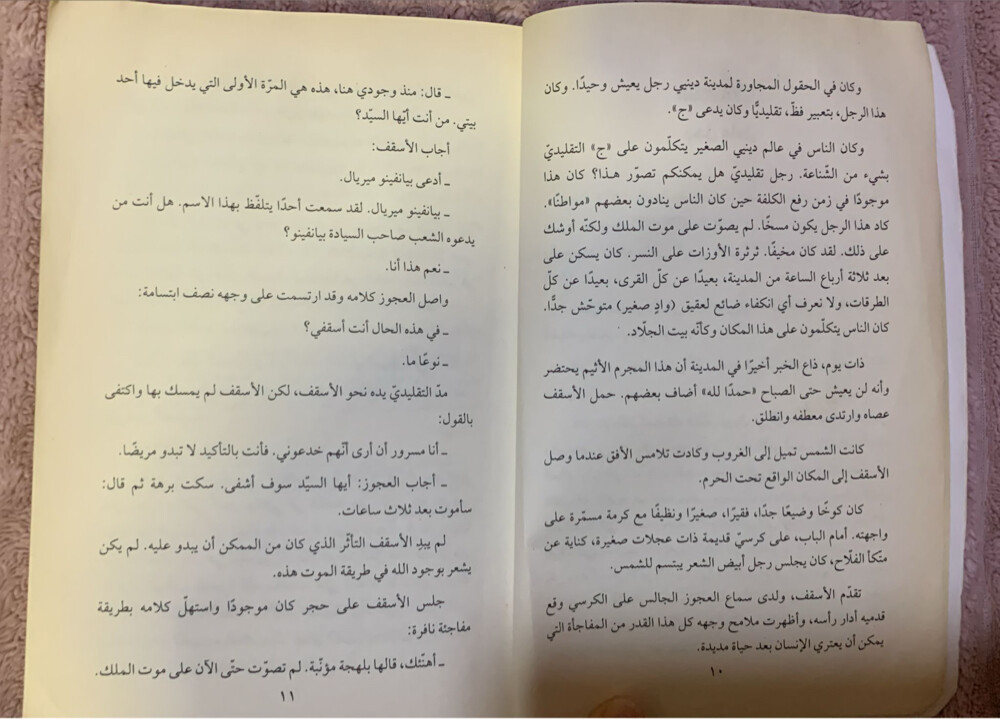 وكان في الحقول المجاورة لمدينة دينيي رجل يعيش وحيدًا. وكان
هذا الرجل، بتعبير فظّ، تقليديًّا وكان يدعى «ج».
وكان الناس في عالم دينيي الصغير يتكلّمون على «ج» التقليديّ
بشيء من الشّناعة. رجل تقليديّ هل يمكنكم تصوّر هـذا؟ كان هذا
موجودًا في زمن رفع الكلفة حين كان الناس ينادون بعضهم «مواطنًا».
كاد هذا الرجل يكون مسخًا. لم يصوّت على موت الملك ولكنّه أوشك
على ذلك. لقد كان مخيفًا. ثرثرة الأوزات على النسر. كان يسكن على
بعد ثلاثة أرباع الساعة من المدينة، بعيدًا عن كلّ القرى، بعيدًا عن كلّ
الطرقات، ولا نعرف أي انكفاء ضائع لعقيق (وادٍ صغير) متوحّش جدًّا.
كان الناس يتكلّمون على هذا المكان وكأنّه بيت الجلّاد.
ذات يوم، ذاع الخبر أخيرًا في المدينة أن هذا المجرم الأثيم يحتضر
وأنه لن يعيش حتى الصباح «حمدًا لله» أضاف بعضهم. حمل الأسقف
عصاه وارتدى معطفه وانطلق.
كانت الشمس تميل إلى الغروب وكادت تلامس الأفق عندما وصل
الأسقف إلى المكان الواقع تحت الحرم.
كان كوخًا وضيعًا جدًا، فقيرًا، صغيرًا ونظيفًا مع كرمة مسمّرة على
واجهته. أمام الباب، على كرسيّ قديمة ذات عجلات صغيرة، كناية عن
متّكأ الفلّاح، كان يجلس رجل أبيض الشعر يبتسم للشمس.
تقدّم الأسقف، ولدى سماع العجوز الجالس على الكرسي وقع
قدميه أدار رأسه، وأظهرت ملامح وجهه كل هذا القدر من المفاجأة التي
يمكن أن يعتري الإنسان بعد حياة مديدة.
١٠
ـ قال: منذ وجودي هنا، هذه هي المرّة الأولى التي يدخل فيها أحد
بيتي. من أنت أيّها السيّد؟
أجاب الأسقف:
ـ أدعى بيانفينو ميريال.
ـ بيانفينو ميريال. لقد سمعت أحدًا يتلفّظ بهذا الاسم. هل أنت من
يدعوه الشعب صاحب السيادة بيانفينو؟
ـ نعم هذا أنا.
واصل العجوز كلامه وقد ارتسمت على وجهه نصف ابتسامة:
ـ في هذه الحال أنت أسقفي؟
ـ نوعًا ما.
مدّ التقليديّ يده نحو الأسقف، لكن الأسقف لم يمسك بها واكتفى
بالقول:
ـ أنا مسرور أن أرى أنّهم خدعوني. فأنت بالتأكيد لا تبدو مريضًا.
ـ أجاب العجوز: أيها السيّد سوف أشفى. سكت برهة ثم قال:
سأموت بعد ثلاث ساعات.
لم يبدِ الأسقف التأثّر الذي كان من الممكن أن يبدو عليه. لم يكن
يشعر بوجود الله في طريقة الموت هذه.
جلس الأسقف على حجر كان موجودًا واستهلّ كلامه بطريقة
مفاجئة نافرة:
ـ أهنّئك، قالها بلهجة مؤنّبة. لم تصوّت حتّى الآن على موت الملك.
١١